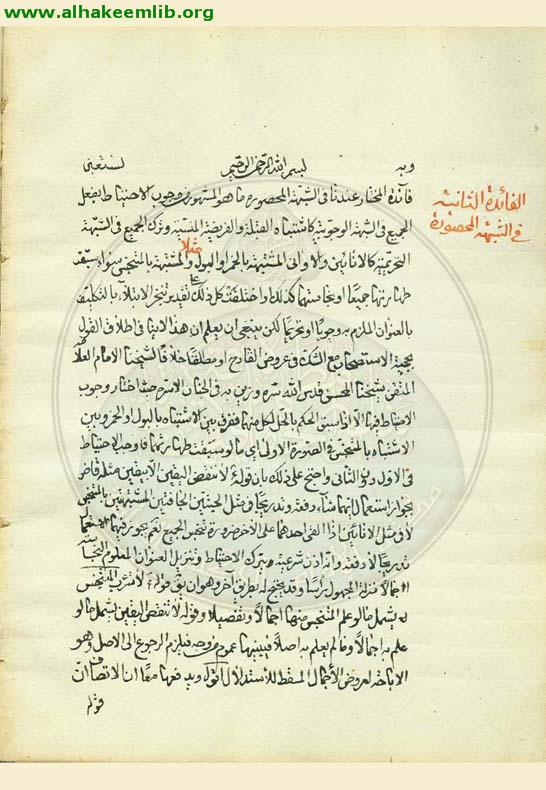 www.alhakeemlib.org
وبه بسم الله الرحمن الرحيم نستعين
الفائدة الثانية
في الشبهة المحصورة
فائدة المختار عندنا في الشبهة المحصورة ما هو المشهور من وجوب الاحتياط بفعل
الجميع في الشبهة الوجوبية كاشتباه القبلة والفريضة المنسية وترك الجميع في الشبهة
مثلا
التحريمية كالانائين والاواني المشتبهة بالخمر او البول والمشتبهة بالمتنجس سواء سبقت
طهارتها جميعا او نجاستها كذلك او اختلفت كل ذلك تقديم تنجز الابتلاء بالتكليف
بالعنوان الملزم به وجوبا او تحريما لكن ينبغي ان يعلم ان هذا لا ينافي اطلاق القول
بحجية الاستصحاب مع الشك في عروض القادح او مطلقا خلافا لشيخنا الامام العلامة
المتقي شيخنا المحسن قدس الله سره وزين به في الجنان الاسرة حيث اختار وجوب
الاحتياط فيها الا اذا سبق الحكم بالحل لكل منها ففرق بين الاشتباه بالبول والخمر وبين
الاشتباه بالمتنجس في الصورة الاولى اي ما لو سبقت طهارتها فاوجب الاحتياط
في الاول دون الثاني واحتج على ذلك بان قوله لا تنقض اليقين الا بيقين مثله قاض
بجواز استعمال ايها شاء دفعة وتدريجا في مثل الجبنين الجافتين المشتبهتين بالمتنجس
لا في مثل الانائين اذا القى احدهما على الاخر ضرورة تنجس الجميع نعم يجوز فيها الاستعمال
تدريجا لا دفعة
اجمالا منزلة المجهول راسا وقد يحتج له بطريق آخر وهو ان يق قوله
يشمل ما لو علم المتنجس منها اجمالا وتفصيلا وقوله لا تنقض اليقين يشمل ما لو
علم به اجمالا وما لم يعلم به اصلا فبينهما عموم من وجه فيلزم الرجوع الى الاصل وهو
الاباحة لعروض الاجمال المسقط للاستدلال اقول ويدفعها معا ان الانصاف ان
قوله